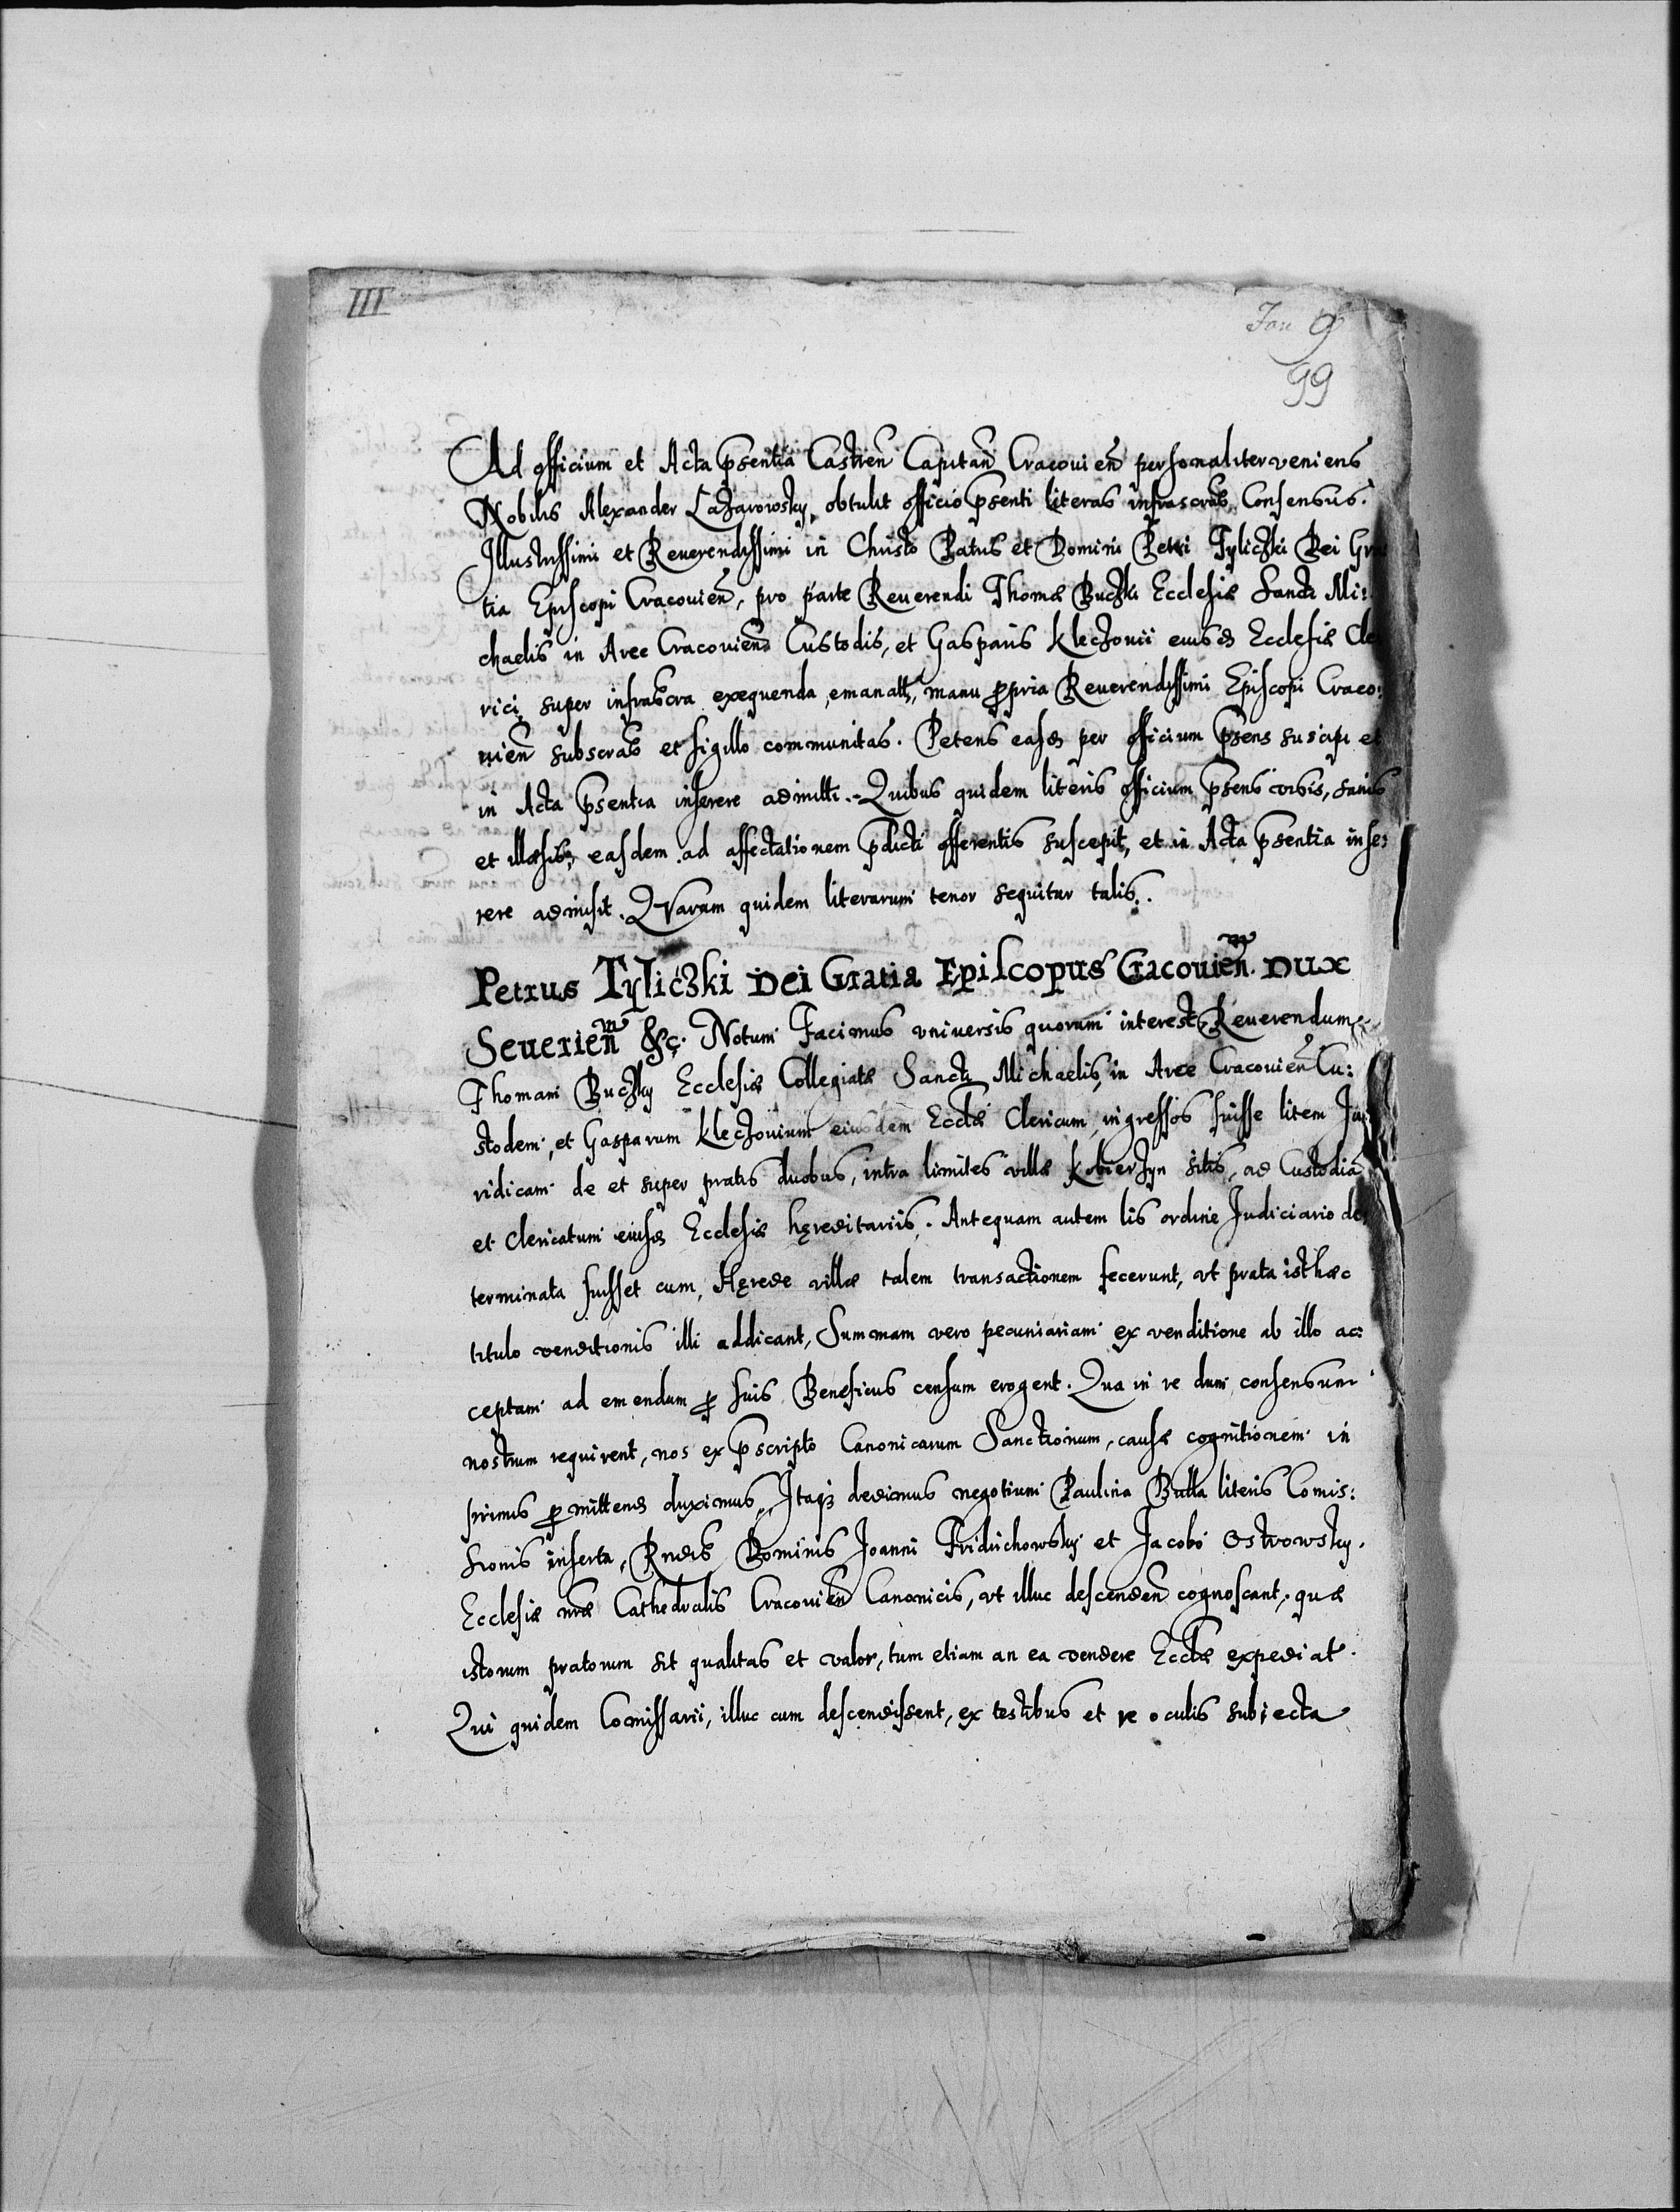 III
99
Ad officium et Acta p̃sentia Castreñ Capitañ Cracouieñ personaliter veniens
Nobilis Alexander Lazarowsky, obtulit officio p̃senti literas infrascr̃as Consensus
Illustrissimi et Reuerendissimi in Christo Patris et Domini Petri Tyliczki Dei Gra
tia Episcopi Cracouieñ, pro parte Reuerendi Thomæ Buczki Ecclesiæ Sancti Mi:
chaelis in Arce Cracovieñ Custodis, et Gasparis Kleczouii eiusd Ecclesiæ Cle
rici, super infrascra exequenda, emanatt, manu p̱pria Reuerendissimi Episcopi Craco:
uieñ subscr̃as et sigillo communitas. Petens easd per officium p̃sens suscipi et
in Acta p̃sentia inserere admitti. Quibus quidem literis officium p̃sens visis, sanis
et illæsis, easdem ad affectationem p̃dicti offerentis suscepit, et in Acta p̃sentia inse:
rere admisit. Quarum quidem literarum tenor sequitur talis.
Petrus Tyliczki Dei Gratia Episcopus Cracouieñ. Dux
Seuerieñ &c. Notum Facimus vniversis quorum interest, Reuerendum
Thomam Buczky Ecclesiæ Collegiatæ Sancti Michaelis, in Arce Cracouieñ Cu:
stodem, et Gasparum Kleczouium eiusdem Eccl̃æ Clericum, ingressos fuisse litem Ju
ridicam de et super pratis duobus, intra limites villæ Kobierzyn sitis, ad Custodiã
et Clericatum eiusd Ecclesiæ hęreditariis. Antequam autem lis ordine Judiciario de
terminata fuisset cum, Hęrede villæ talem transactionem fecerunt, vt prata isthæc
titulo venditionis illi addicant, Summam vero pecuniariam ex venditione ab illo ac:
ceptam ad emendum p̱ suis Beneficiis censum erogent. Qua in re dum consensum
nostrum requirent, nos ex p̃scripto Canonicarum Sanctionum, causæ cognitionem in
primis p̱mittend duximus, Itaq; dedimus negotium Paulina Bulla literis Comis:
sionis inserta, Rndis Dominis Joanni Fridrichowsky et Jacobo Ostrowsky
Ecclesiæ nr̃æ Cathedralis Cracouieñ Canonicis, vt illuc descendeñ cognoscant, quæ
istorum pratorum sit qualitas et valor, tum etiam an ea vendere Eccl̃æ expediat.
Qui quidem Comissarii, illuc cum descendissent, ex testibus et re oculis subiecta